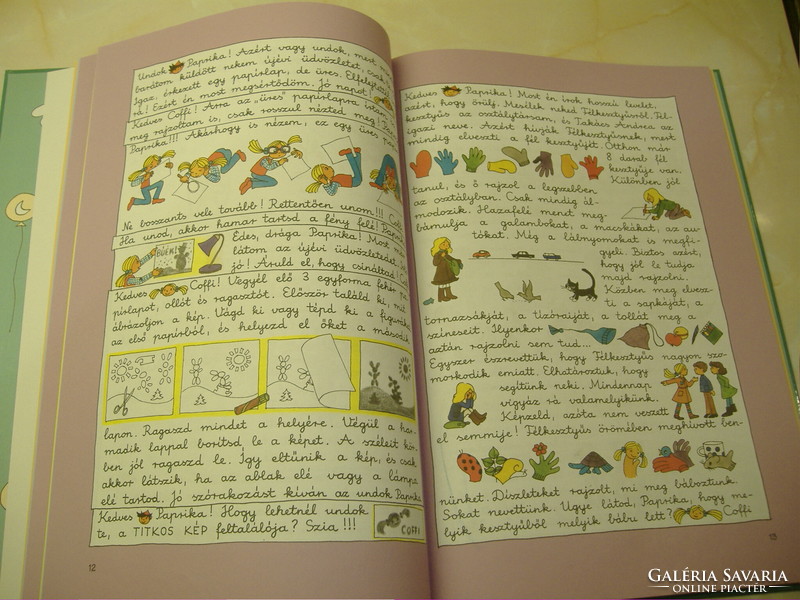 Undok Paprika! Azért vagy undok, mert
barátom küldött nekem újévi üdvözletet, csak
Igaz, érkezett egy papírlap, de üres. Elfelejtett
rá! Ezért én most megsértődöm. Jó napot!
Kedves Coffi! Arra az „üres" papírlapra írtam
meg rajzoltam is, csak rosszul nézted meg!
Paprika!!! Akárhogy is nézem, ez egy üres
Ne bosszants vele tovább! Rettentően unom!!!
Ha unod, akkor hamar tartsd a fény felé! Paprika
BUÉK!
Édes, drága Paprika! Most
látom az újévi üdvözletedet
jó! Áruld el, hogy csináltad!
Kedves Coffi! Végyél elő 3 egyforma fehér
píslapot, ollót és ragasztót. Először találd ki, mit
ábrázoljon a kép. Vágd ki vagy tépd ki a figurákat
az első papírból, és helyezd el őket a második
lapon. Ragaszd mindet a helyére. Végül a har-
madik lappal borítsd le a képet. A széleit kör-
ben jól ragaszd le. Így eltűnik a kép, és csak
akkor látszik, ha az ablak elé vagy a lámpa
elé tartod. Jó szórakozást kíván az undok Paprika
Kedves Paprika! Hogy lehetnél undok
te, a TITKOS KÉP feltalálója? Szia!!!
COFFI
12
Kedves Paprika! Most én írok hosszú levelet,
azért, hogy örülj. Mesélek neked Félkesztyűsről. Fél-
kesztyűs az osztálytársam, és Takács Andrea az
igazi neve. Azért hívják Félkesztyűsnek, mert
mindig elveszti a fél kesztyűjét. Otthon már
8 darab fél
kesztyűje van.
Különben jól
tanul, és ő rajzol a legszebben
az osztályban. Csak mindig ál-
modozik. Hazafelé menet meg-
bámulja a galambokat, a macskákat, az au-
tókat. Még a lábnyomokat is megfi-
gyeli. Biztos azért,
hogy jól le tudja
majd rajzolni.
Közben meg elvesz-
ti a sapkáját, a
tornazsákját, a tízóraiját, a tollát meg a
színeseit. Ilyenkor
aztán rajzolni sem tud...
Egyszer észrevettük, hogy Félkesztyűs nagyon szo-
morkodik emiatt. Elhatároztuk, hogy
segítünk neki. Mindennap
vigyáz rá valamelyikünk.
Képzeld, azóta nem veszett
el semmije! Félkesztyűs örömében meghívott ben-
nünket. Díszleteket rajzolt, mi meg báboztunk.
Sokat nevettünk. Ugye látod, Paprika, hogy me-
lyik kesztyűből melyik bábu lett? Coffi
13
GALÉRIA SAVARIA
ONLINE PIACTÉR